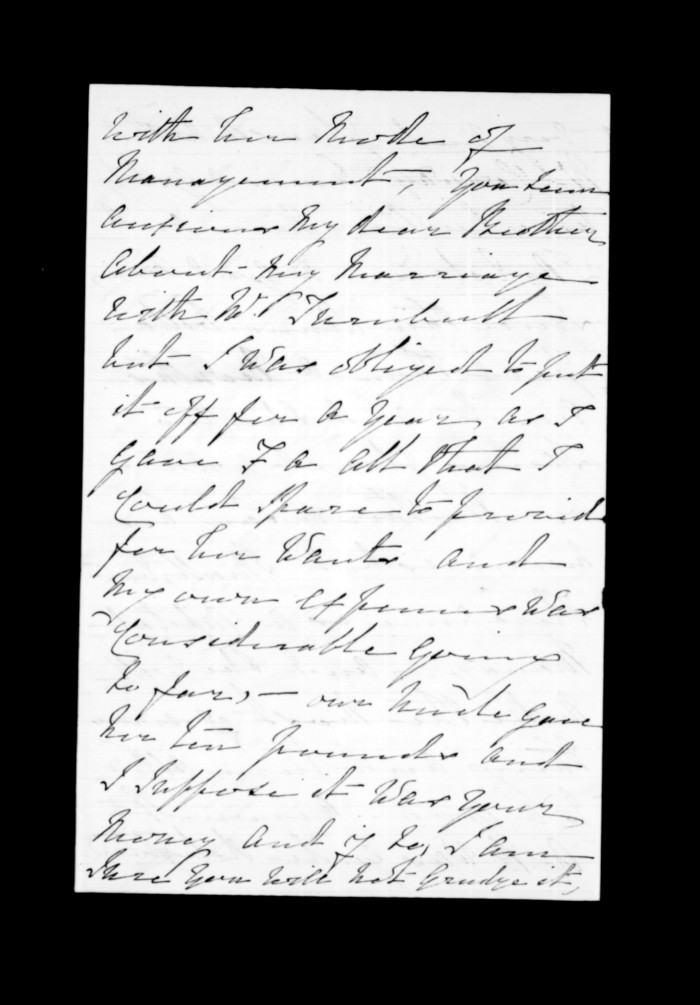 with her Mode of
Management, You seem
anxious My dear Brother
about My Marriage
with Mr. Turnbull
but I was obliged to put
it off for a year, as I
gave F a all that I
could spare to provide
for her Wants and
My own expenses was
Considerable going
so far, — our Uncle gave
her ten pounds and
I suppose it was your
Money and if so, I am
Sure You will not Grudge it,